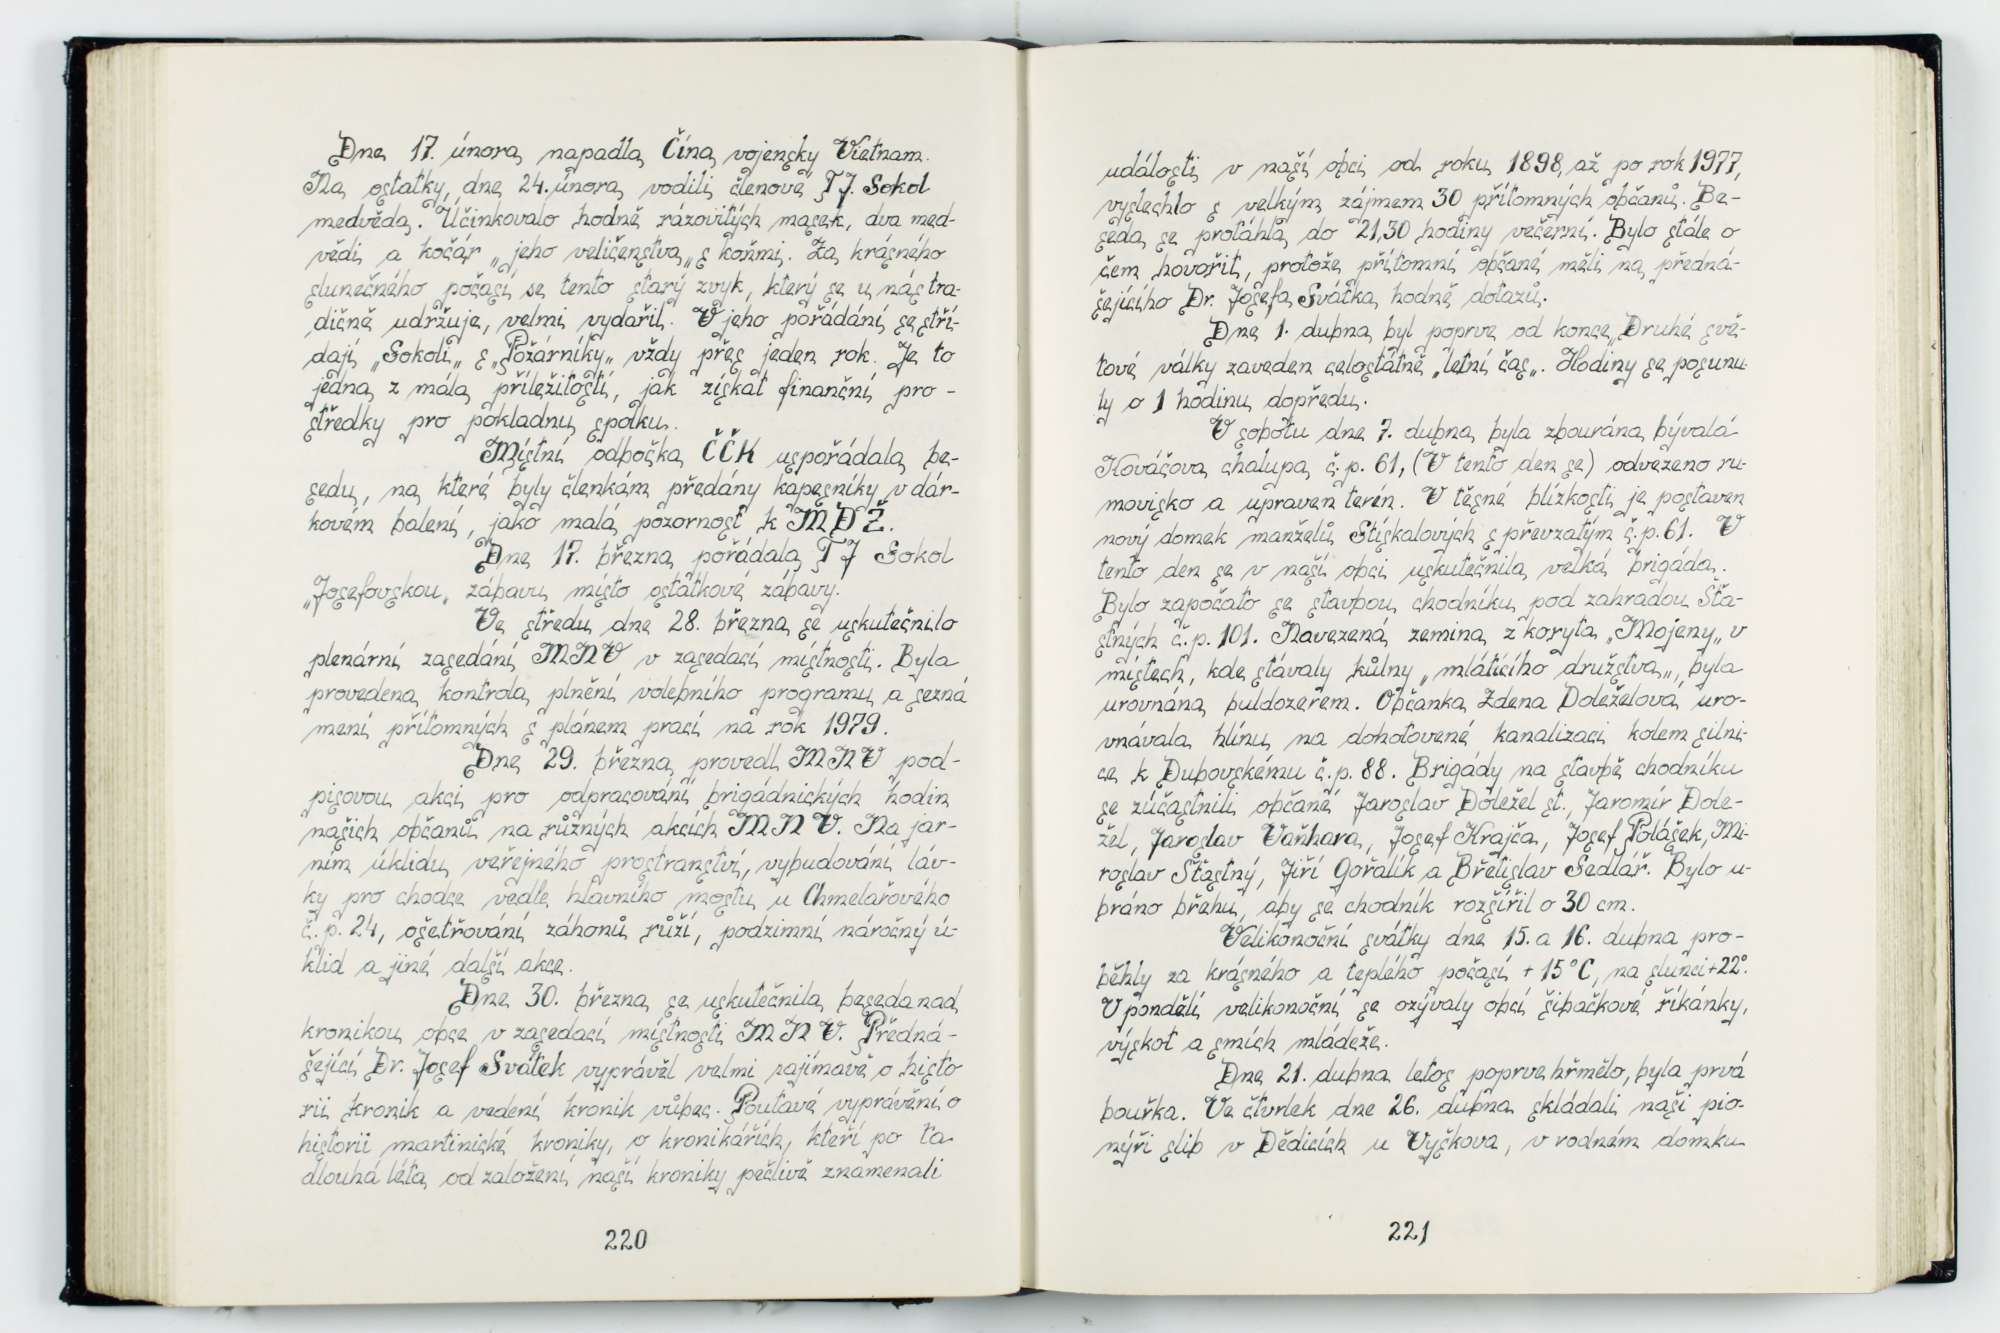 Dne 17. února napadla Čína vojensky Vietnam.
Na ostatky, dne 24. února vodili členové TJ. Sokol
medvěda. Účinkovalo hodně rázovitých masek, dva med-
vědi a kočár „jeho veličenstva„ s koňmi. Za krásného
slunečného počasí se tento starý zvyk, který se u nás tra-
dičně udržuje, velmi vydařil. V jeho pořádání se stří-
dají „Sokoli„ s „Požárníky„ vždy přes jeden rok. Je to
jedna z mála příležitostí, jak získat finanční pro-
středky pro pokladnu spolku.
Místní odbočka ČČK uspořádala be-
sedu, na které byly členkám předány kapesníky v dár-
kovém balení, jako malá pozornost k MDŽ.
Dne 17. března pořádala TJ Sokol
„Josefovskou„ zábavu místo ostatkové zábavy.
Ve středu dne 28. března se uskutečnilo
plenární zasedání MNV v zasedací místnosti. Byla
provedena kontrola plnění volebního programu a sezná
mení přítomných s plánem prací na rok 1979.
Dne 29. března provedl MNV pod-
pisovou akci pro odpracování brigádnických hodin
našich občanů na různých akcích MNV. Na jar-
ním úklidu veřejného prostranství, vybudování láv-
ky pro chodce vedle hlavního mostu u Chmelařového
č.p. 24, ošetřování záhonů růží, podzimní náročný ú-
klid a jiné další akce.
Dne 30. března se uskutečnila beseda nad
kronikou obce v zasedací místnosti MNV. Předná-
šející Dr. Josef Svátek vyprávěl velmi zajímavě o histo
rii kronik a vedení kronik vůbec. Poutavé vyprávění o
historii martinické kroniky, o kronikářích, kteří po ta
dlouhá léta od založení naší kroniky pečlivě znamenali
220
události v naší obci od roku 1898 až po rok 1977,
vyslechlo s velkým zájmem 30 přítomných občanů. Be-
seda se protáhla do 21,30 hodiny večerní. Bylo stále o
čem hovořit, protože přítomní občané měli na předná-
šejícího Dr. Josefa Svátka hodně dotazů.
Dne 1. dubna byl poprve od konce „Druhé svě-
tové války zaveden celostátně „letní čas„. Hodiny se posunu
ly o 1 hodinu dopředu.
V sobotu dne 7. dubna byla zbourána bývalá
Kováčova chalupa č.p. 61, (V tento den se) odvezeno ru-
movisko a upraven terén. V těsné blízkosti je postaven
nový domek manželů Stískalových s převzatým č.p. 61. V
tento den se v naší obci uskutečnila velká brigáda.
Bylo započato se stavbou chodníku pod zahradou Šťa-
stných č.p. 101. Navezená zemina z koryta „Mojeny„ v
místech, kde stávaly kůlny „mlátícího družstva„, byla
urovnána buldozerem. Občanka Zdena Doleželová uro-
vnávala hlínu na dohotovené kanalizaci kolem silni-
ce k Dubovskému č.p. 88. Brigády na stavbě chodníku
se zúčastnili občané Jaroslav Doležel st., Jaromír Dole-
žel, Jaroslav Vaňhara, Josef Krajča, Josef Polášek, Mi-
roslav Šťastný, Jiří Gořalík a Břetislav Sedlář. Bylo u-
bráno břehu, aby se chodník rozšířil o 30 cm.
Velikonoční svátky dne 15. a 16. dubna pro-
běhly za krásného a teplého počasí +15°C, na slunci +22°.
V pondělí velikonoční se ozývaly obcí šibačkové říkánky,
výskot a smích mládeže.
Dne 21. dubna letos poprve hřmělo, byla prvá
bouřka. Ve čtvrtek dne 26. dubna skládali naši pio-
nýři slib v Dědicích u Vyškova, v rodném domku
221